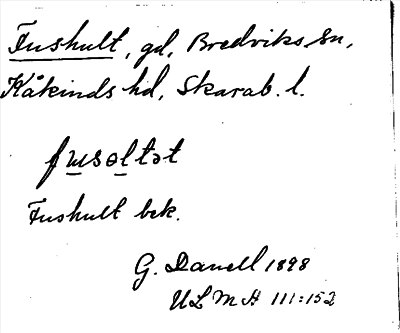 Fushult, gd, Bredviks sn,
Kåkinds hd, Skarab. l.
fusəltət
Fushult bek.
G. Danell 1898
ULMA 111:152